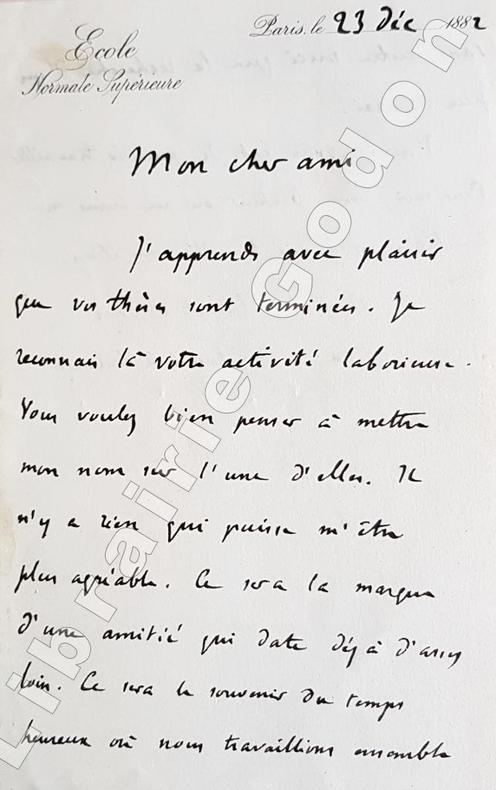 Ecole
Normale Supérieure
Paris, le 23 Déc 1882
Mon cher ami
J'apprends avec plaisir
que vos thèses sont terminées. Je
reconnais là votre activité laborieuse.
Vous voulez bien penser à mettre
mon nom sur l'une d'elles. Il
n'y a rien qui puisse m'être
plus agréable. Ce sera la marque
d'une amitié qui date déjà d'assez
loin. Ce sera le souvenir du temps
heureux où nous travaillions ensemble
Librairie Godon